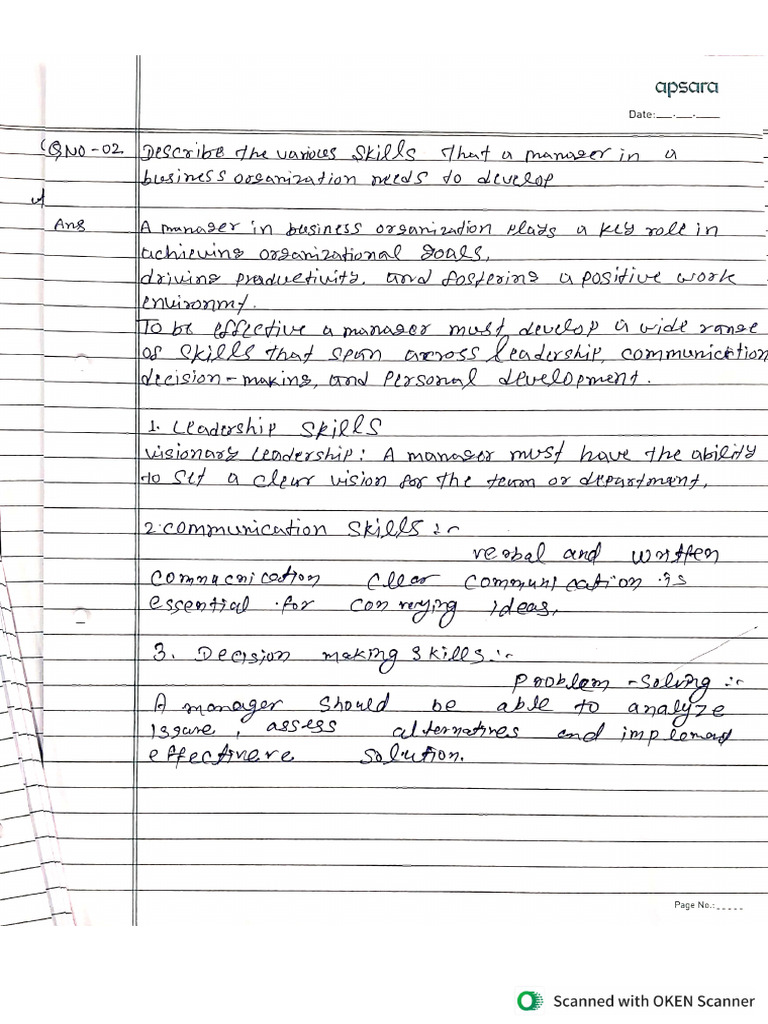 apsara
Date:__.__.___
QNO-02 Describe the various skills that a manager in a
business organization needs to develop
Ans A manager in business organization plays a key role in
achieving organizational goals,
driving productivity. and fostering a positive work
environmt.
To be effective a manager must develop a wide range
of skills that span across leadership, communication
decision-making, and Personal development.
1. Leadership skills
visionary leadership: A manager must have the ability
to set a clear vision for the team or department.
2. communication skills :-
verbal and written
commucnication clear communication is
essential for conveying ideas.
3. Decision making skills :-
problem-solving :-
A manager should be able to analyze
issue, assess alternatives and implemend
effectivere solution.
Page No.:_____
Scanned with OKEN Scanner